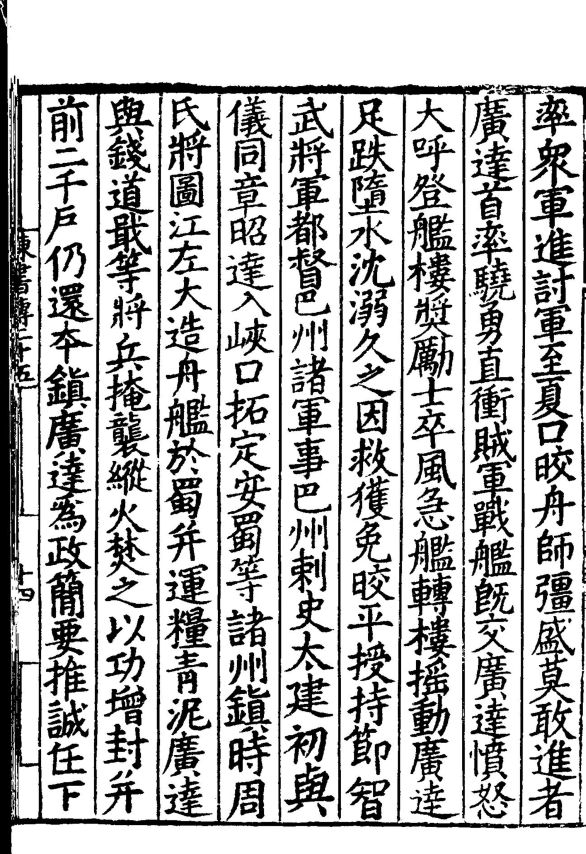 率衆軍進討軍至夏口皎舟師彊盛莫敢進者
廣達首率驍勇直衝賊軍戰艦旣交廣達憤怒
大呼登艦樓奬勵士卒風急艦轉樓摇動廣達
足跌墮水沈溺久之因救獲免皎平授持節智
武將軍都督巴州諸軍事巴州刺史太建初與
儀同章昭達入峽口拓定安蜀等諸州鎮時周
氏將圖江左大造舟艦於蜀并運糧青泥廣達
與錢道戢等將兵掩襲縱火焚之以功增封并
前二千戶仍還本鎮廣達為政簡要推誠任下
陳書傳二十五
十四